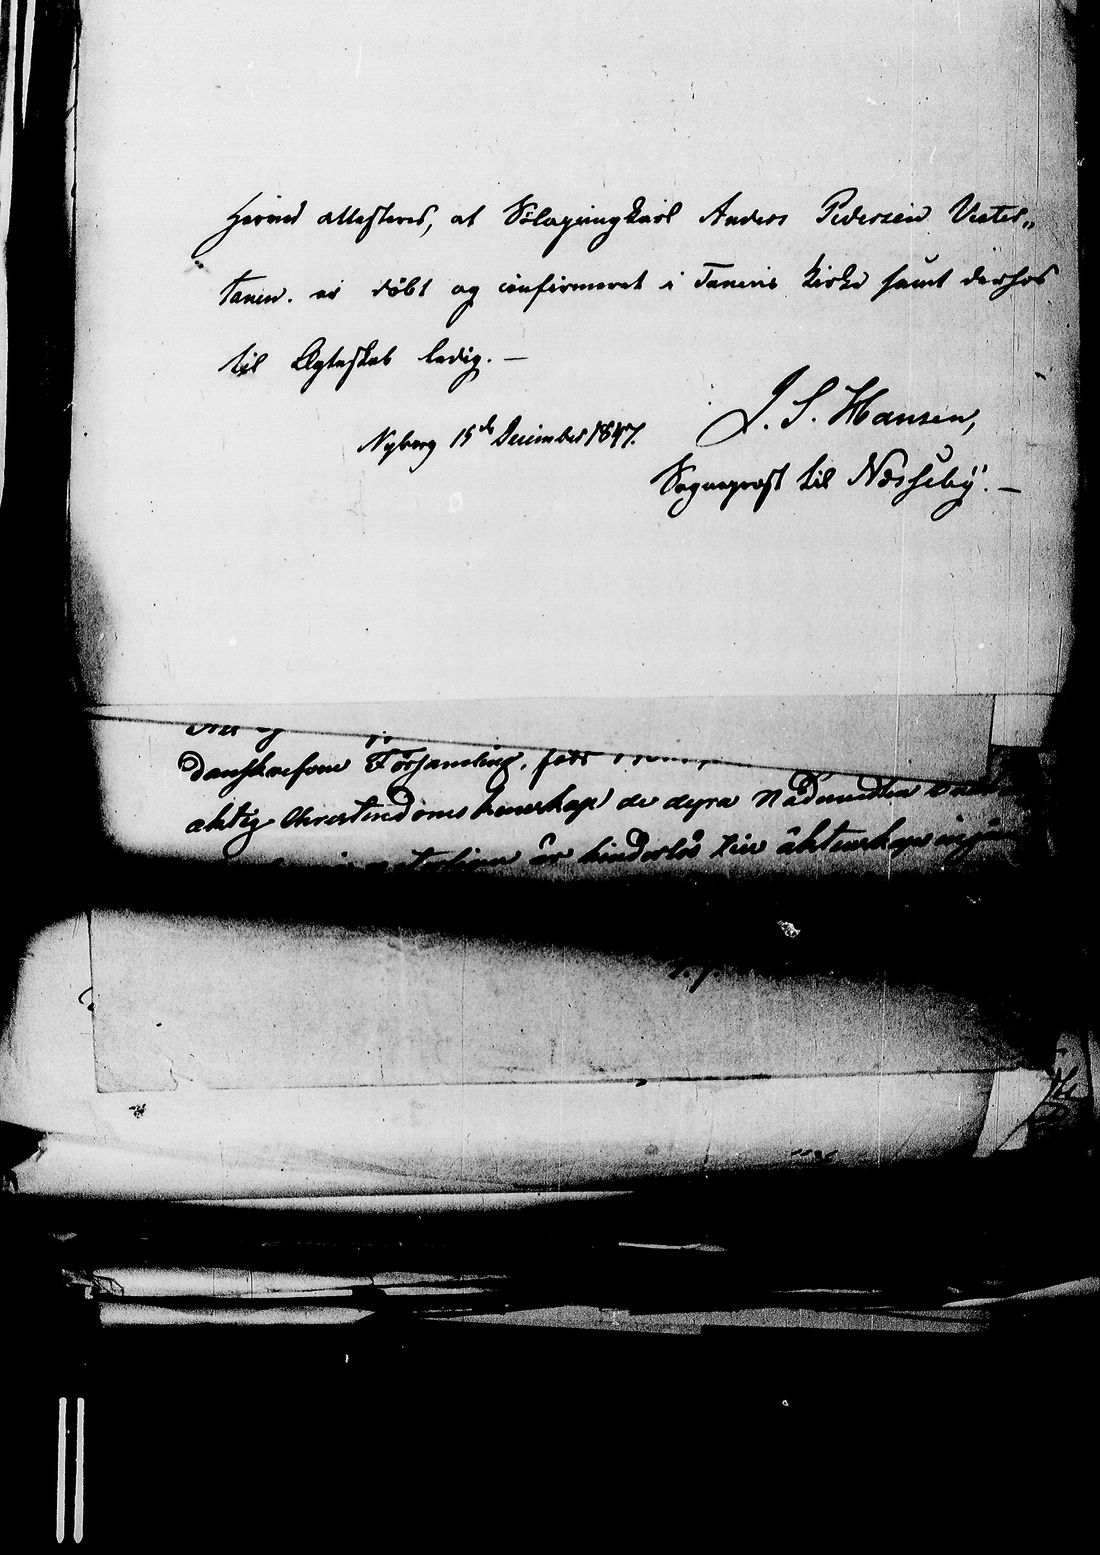 Herved attesteres, at Anders Pedersen Vester„
tanen. er döbt og confirmeret i Tanens Kirke samt derhos
til Ægteskab ledig. —
Nyborg 15de December 1847.
J. S. Hansen,
Sognepræst til Næsseby. —
Församling, född
aktig Christendoms kunskap de dyra Nådemedlen
är hinderlös till äktenskaps